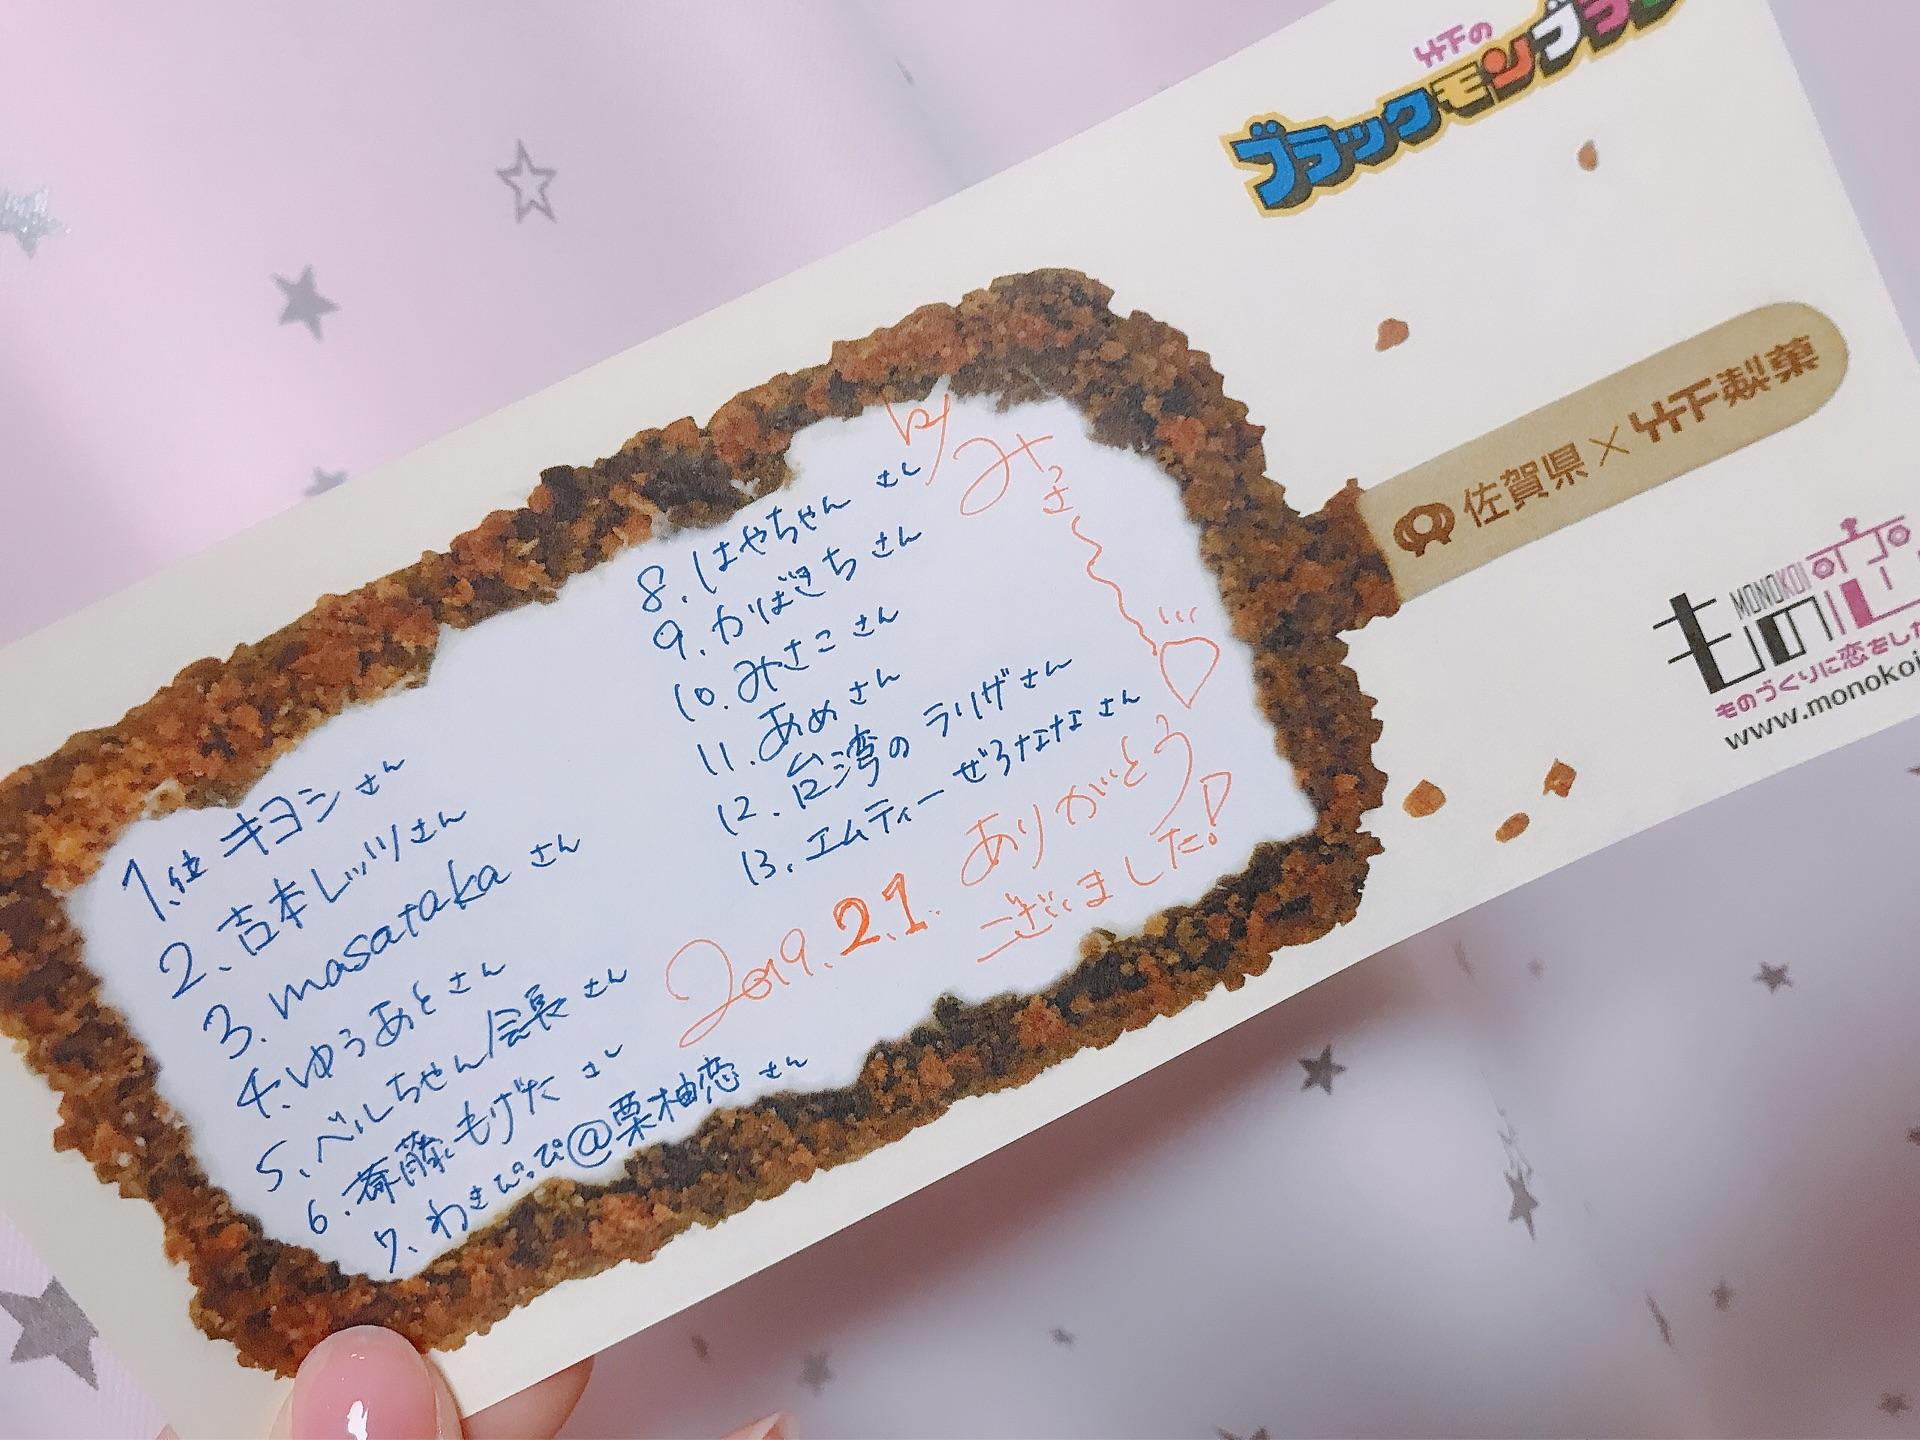 竹下の
ブラックモンブラン
佐賀県×竹下製菓
MONOKOI
もの恋
ものづくりに恋をした
www.monokoi
by みっさ〜〜♡
1.位 キヨシさん
2、吉本レッツさん
3.masatakaさん
4.ゆうあとさん
5、べんちゃん/会長さん
6.斎藤もげたさん
7、わきぴっぴ@栗柚恋さん
8.はやちゃんさん
9.かばきちさん
10.みさこさん
11.あめさん
12.台湾のラリザさん
13.エムティーぜろななさん
2019.2.1.
ありがとう
ございました!